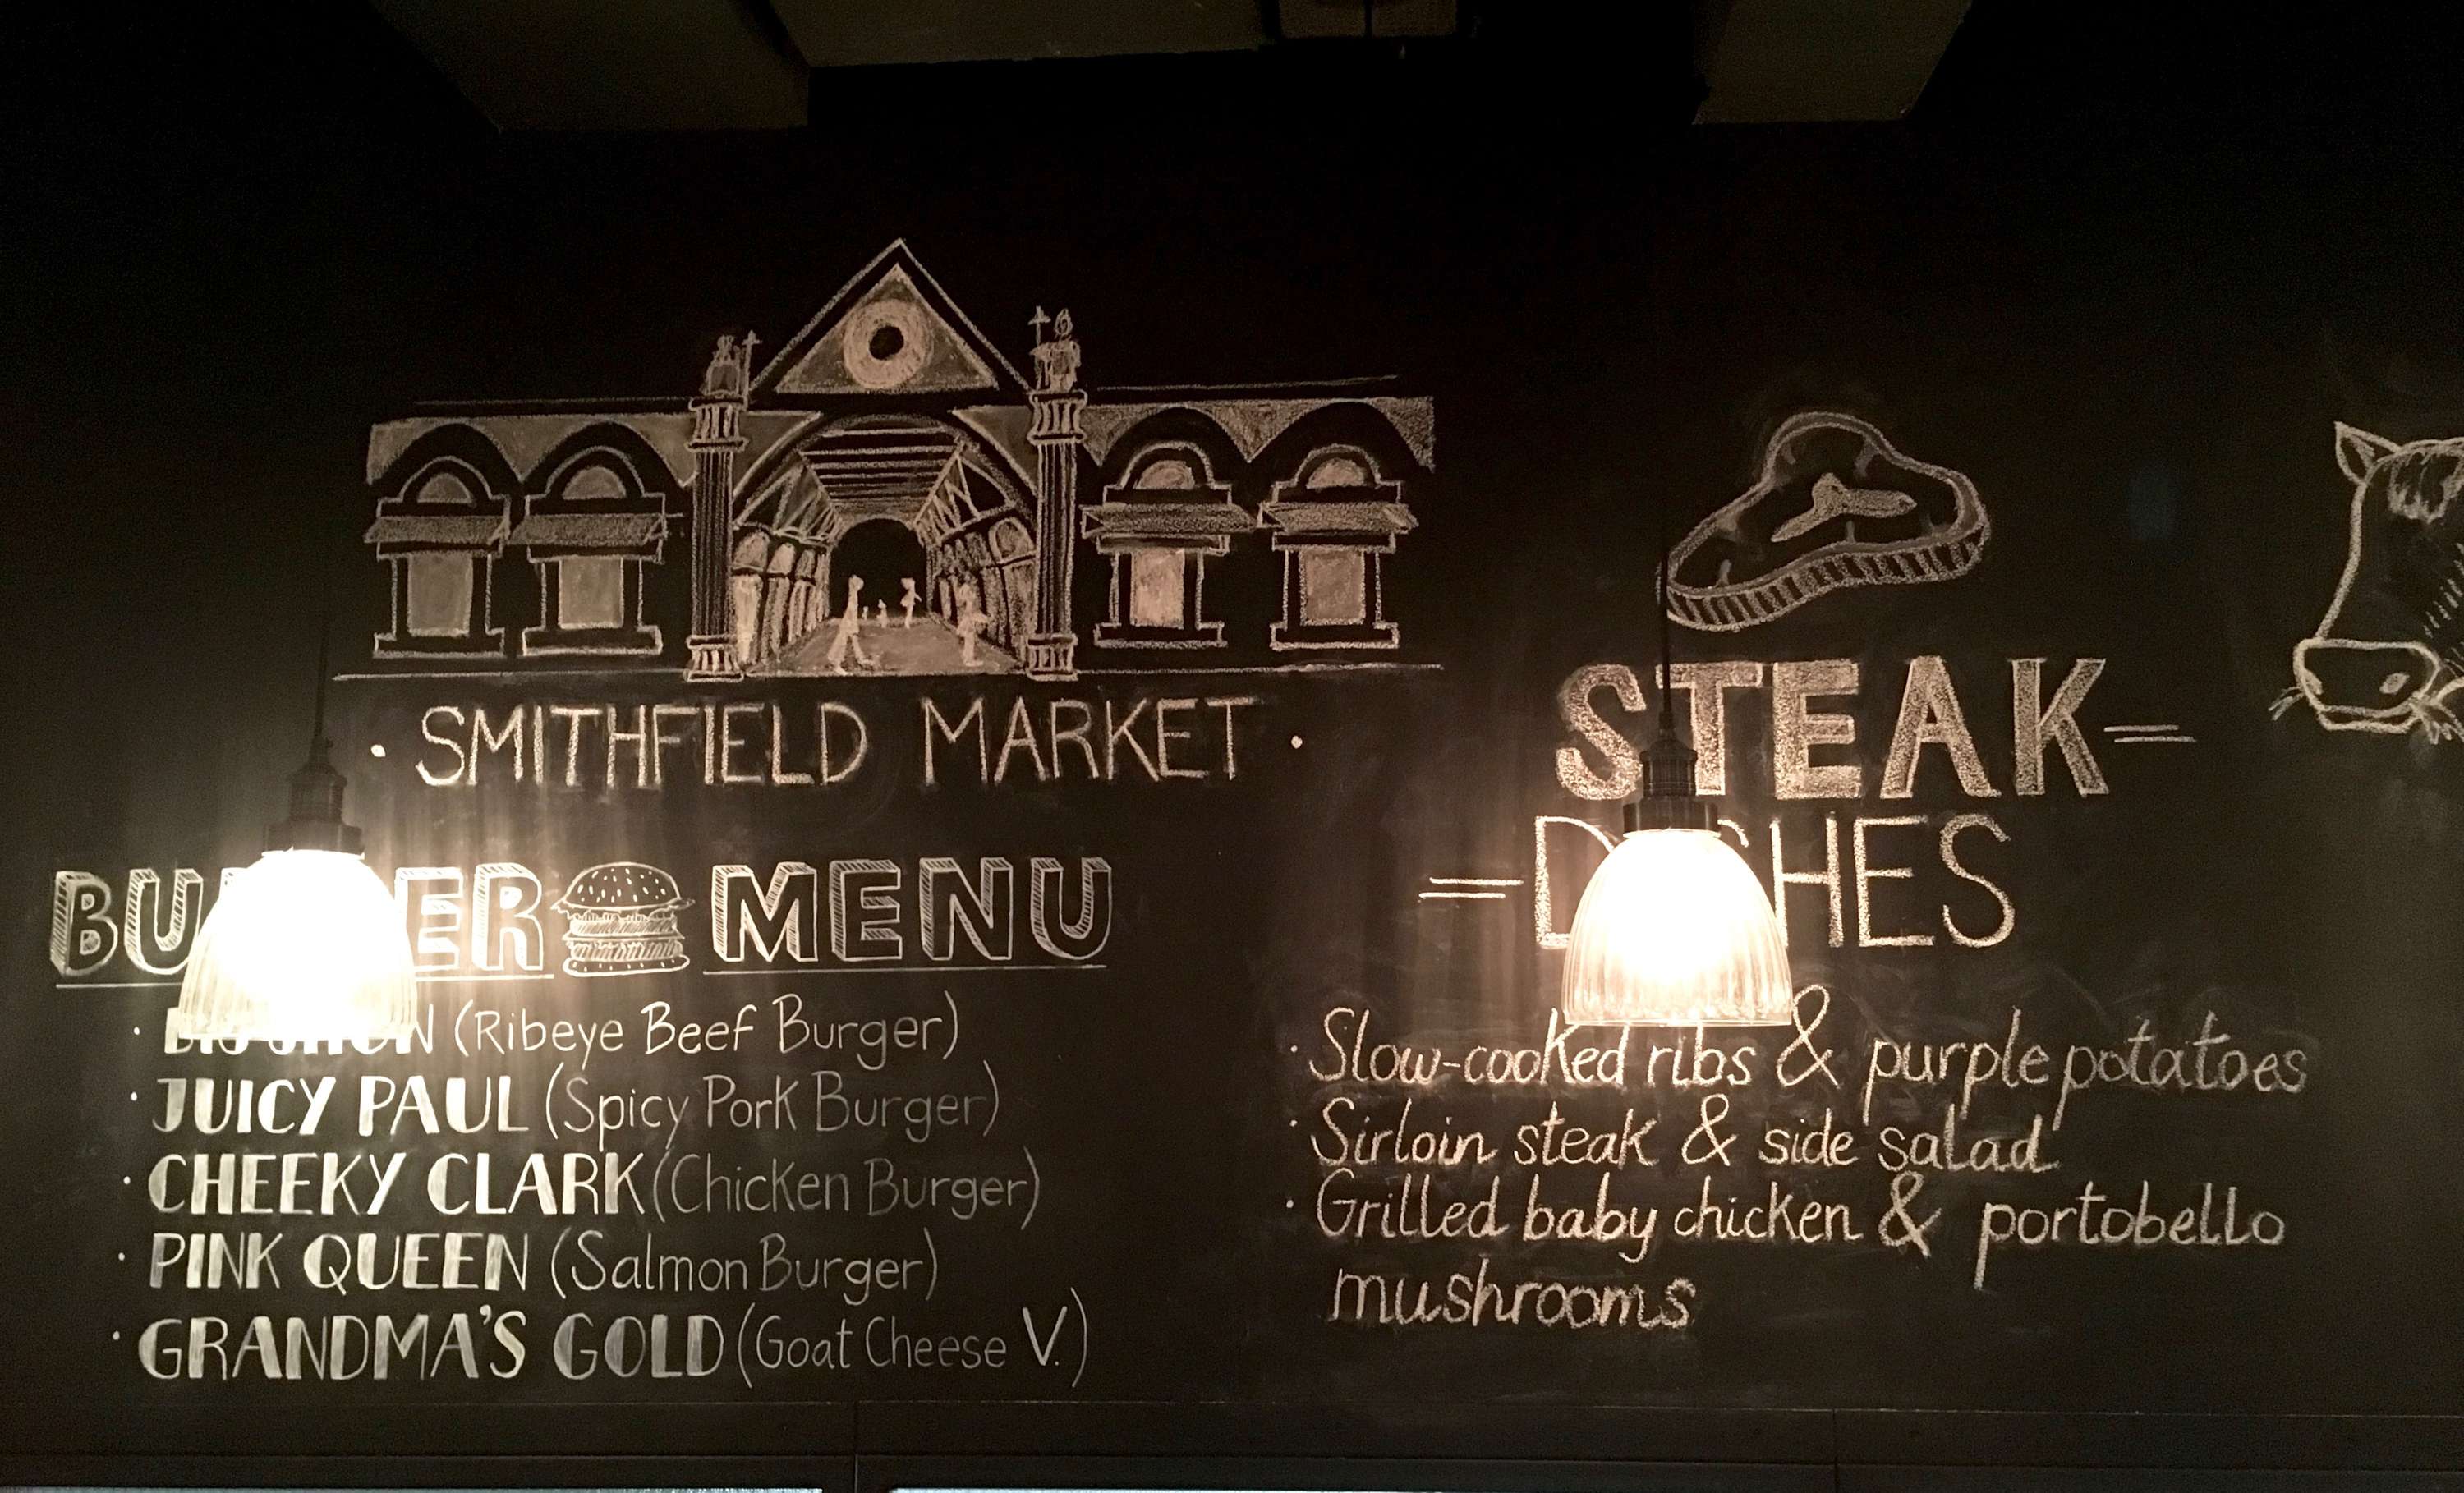 SMITHFIELD MARKET
MENU
(Ribeye Beef Burger)
· JUICY PAUL (Spicy Pork Burger)
· CHEEKY CLARK (Chicken Burger)
· PINK QUEEN (Salmon Burger)
· GRANDMA'S GOLD (Goat Cheese V.)
STEAK
· Slow-cooked ribs & purple potatoes
· Sirloin steak & side salad
· Grilled baby chicken & portobello
mushrooms